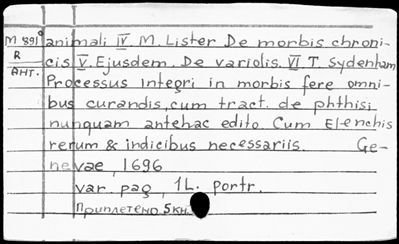 M 891° animali IV M. Lister De morbis chroni-
R cis V. Ejusdem. De variolis. VI T. Sydenham
Ант. Processus integri in morbis fere omni-
bus curandis, cum tract. de phthisi
nunquam antehac edito. Cum Elenchis
rerum & indicibus necessariis. Ge-
nevae, 1696
var. pag, 1L. portr.
Приплетено 5 кн.